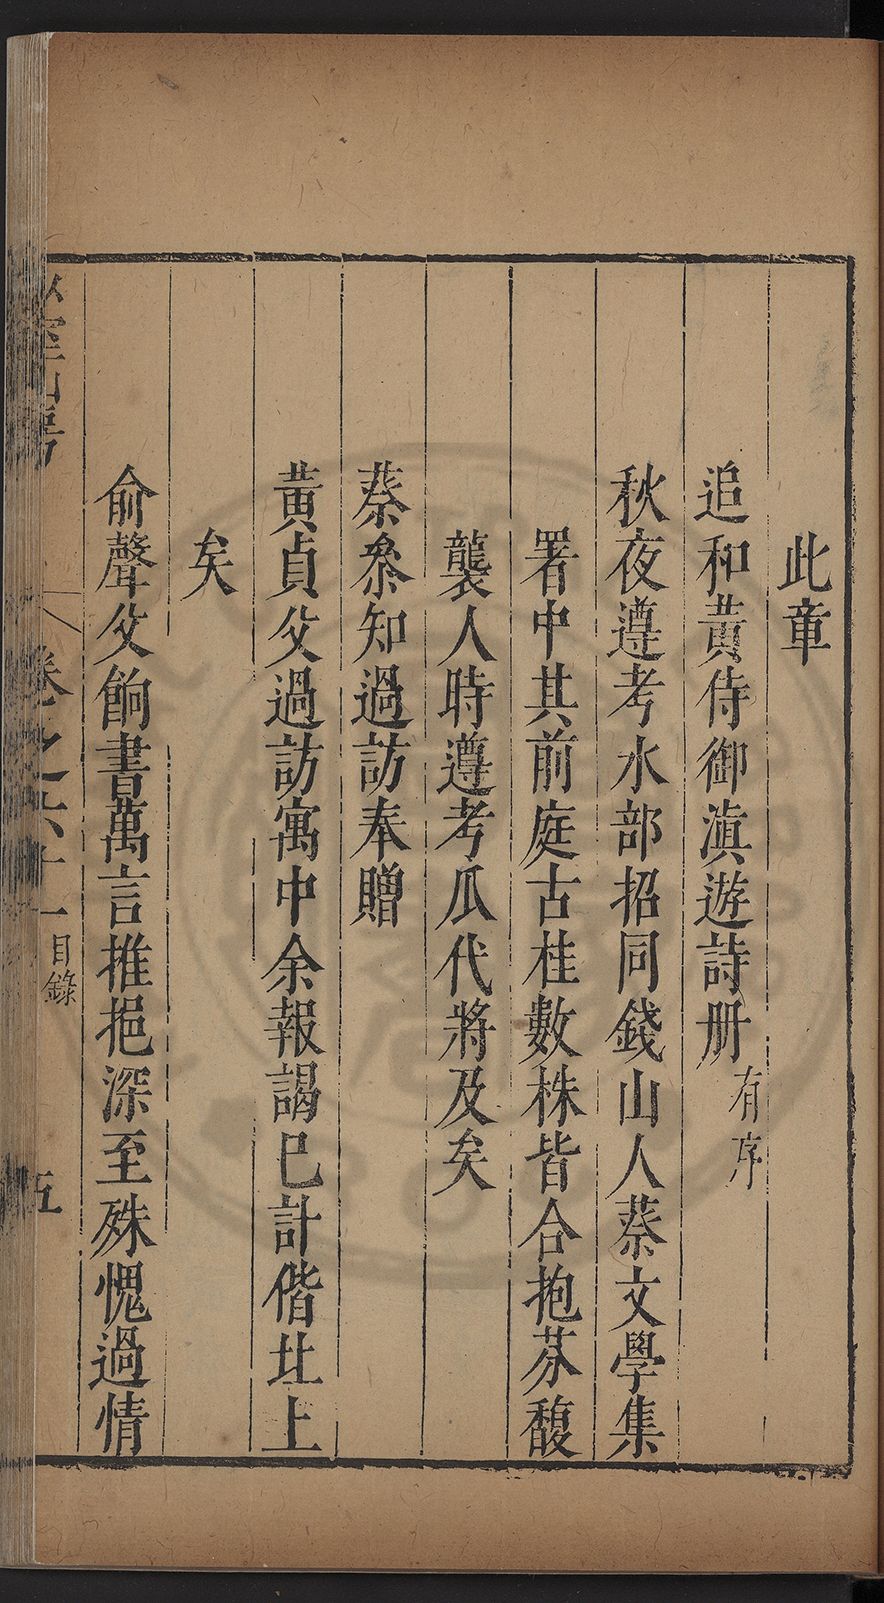 此章
追和黃侍御滇遊詩册有序
秋夜遵考水部招同錢山人蔡文學集
署中其前庭古桂數株皆合抱芬馥
襲人時遵考瓜代將及矣
蔡叅知過訪奉贈
黃貞父過訪寓中余報謁巳計偕北上
矣
俞聲父餉書萬言推挹深至殊愧過情
山房
卷之六十一
目錄
五